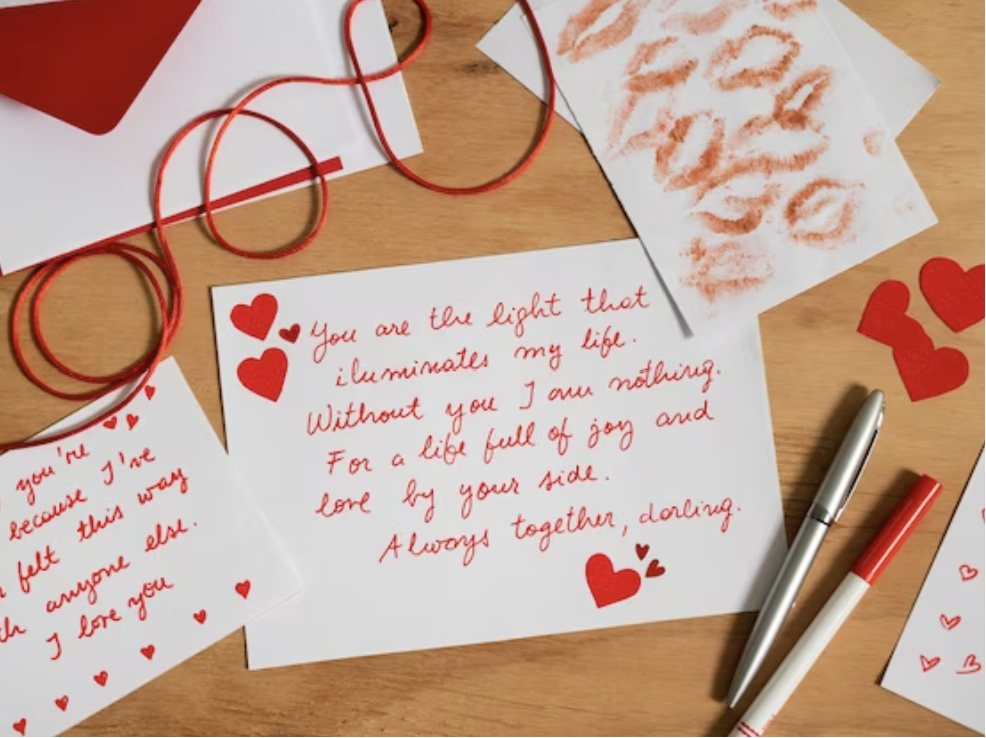 You are the light that
iluminates my life.
Without you I am nothing.
For a life full of joy and
love by your side.
Always together, darling.
you're
because I've
felt this way
anyone else.
I love you